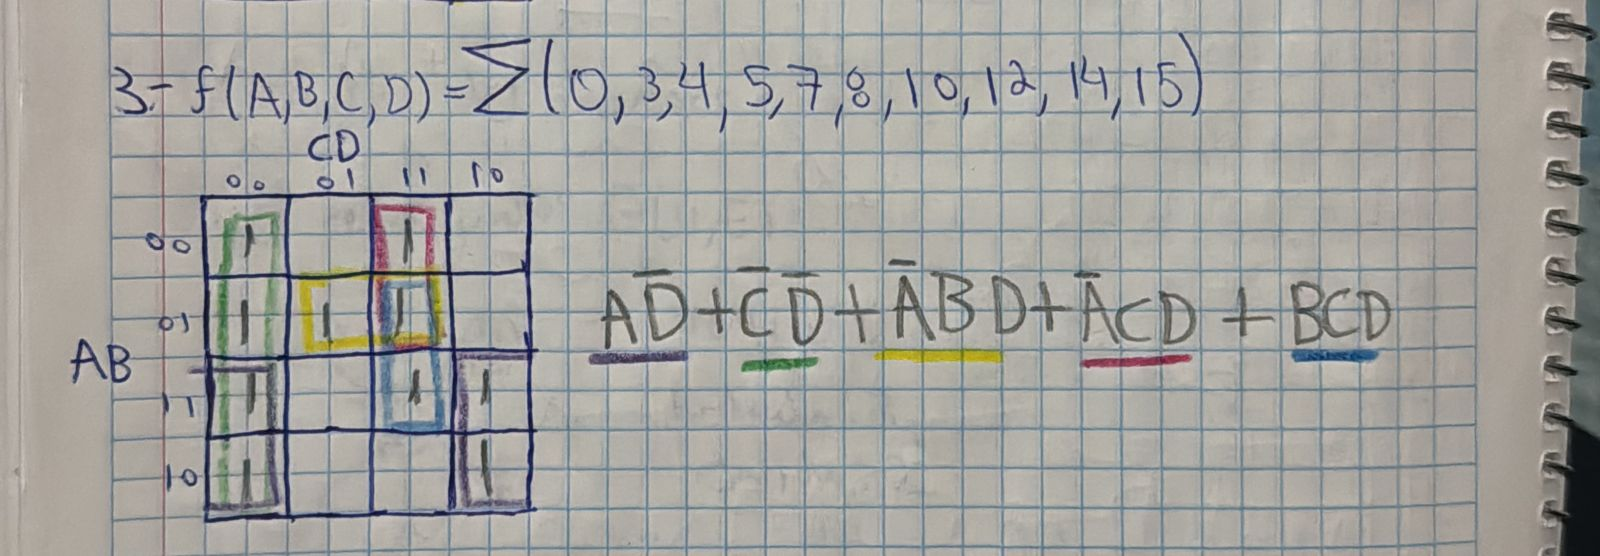 3.- f(A,B,C,D) = Σ(0,3,4,5,7,8,10,12,14,15)
CD
00 01 11 10
00 1 1
01 1 1 1
AB
11 1 1 1
10 1 1
AD̅ + C̅D̅ + A̅BD + A̅CD + BCD